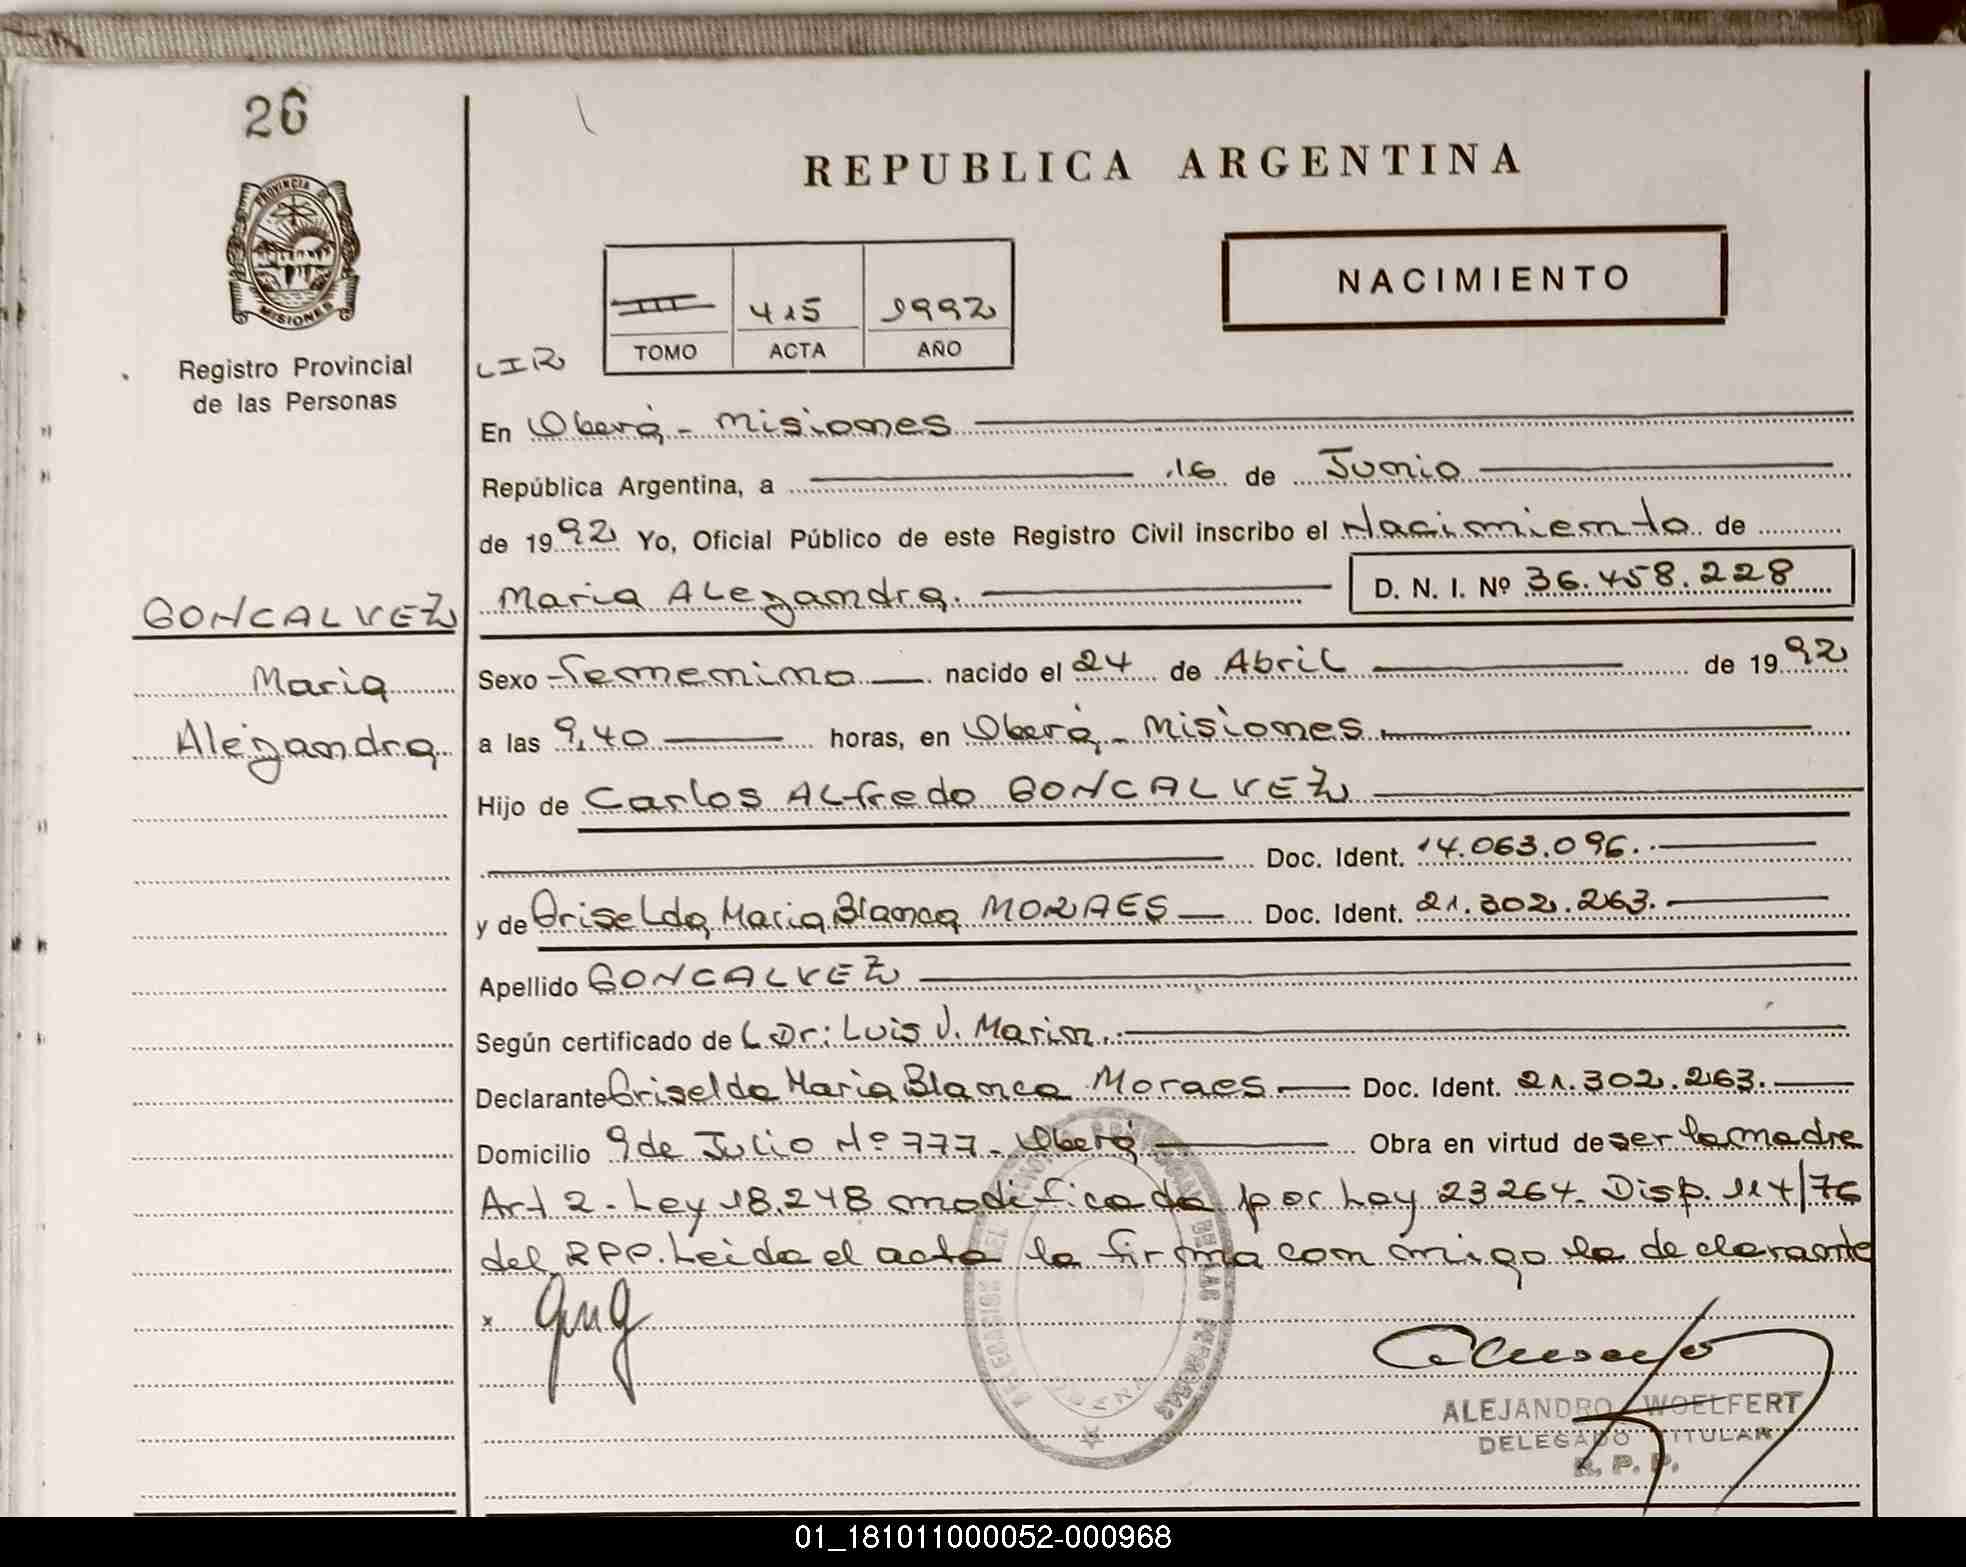 26
PROVINCIA DE
MISIONES
Registro Provincial
de las Personas
REPUBLICA ARGENTINA
NACIMIENTO
III 415 1992
TOMO ACTA AÑO
En Oberá - Misiones
República Argentina, a 16 de Junio
de 1992 Yo, Oficial Público de este Registro Civil inscribo el Nacimiento de
Maria Alejandra. D. N. I. Nº 36.458.228
GONCALVEZ
Maria
Alejandra
Sexo Femenino nacido el 24 de Abril de 1992
a las 9,40 horas, en Oberá - Misiones
Hijo de Carlos Alfredo GONCALVEZ
Doc. Ident. 14.063.096.
y de Griselda Maria Blanca MORAES Doc. Ident. 21.302.263.
Apellido GONCALVEZ
Según certificado de Dr: Luis J. Marin.
Declarante Griselda Maria Blanca Moraes Doc. Ident. 21.302.263.
Domicilio 9 de Julio Nº 777 - Oberá Obra en virtud de ser la madre
Art 2 - Ley 18.248 modificada por Ley 23264. Disp. 114/76
del RPP. Leida el acta la firma con migo la declarante
x
ALEJANDRO WOELFERT
DELEGADO TITULAR
R. P. P.
01_181011000052-000968